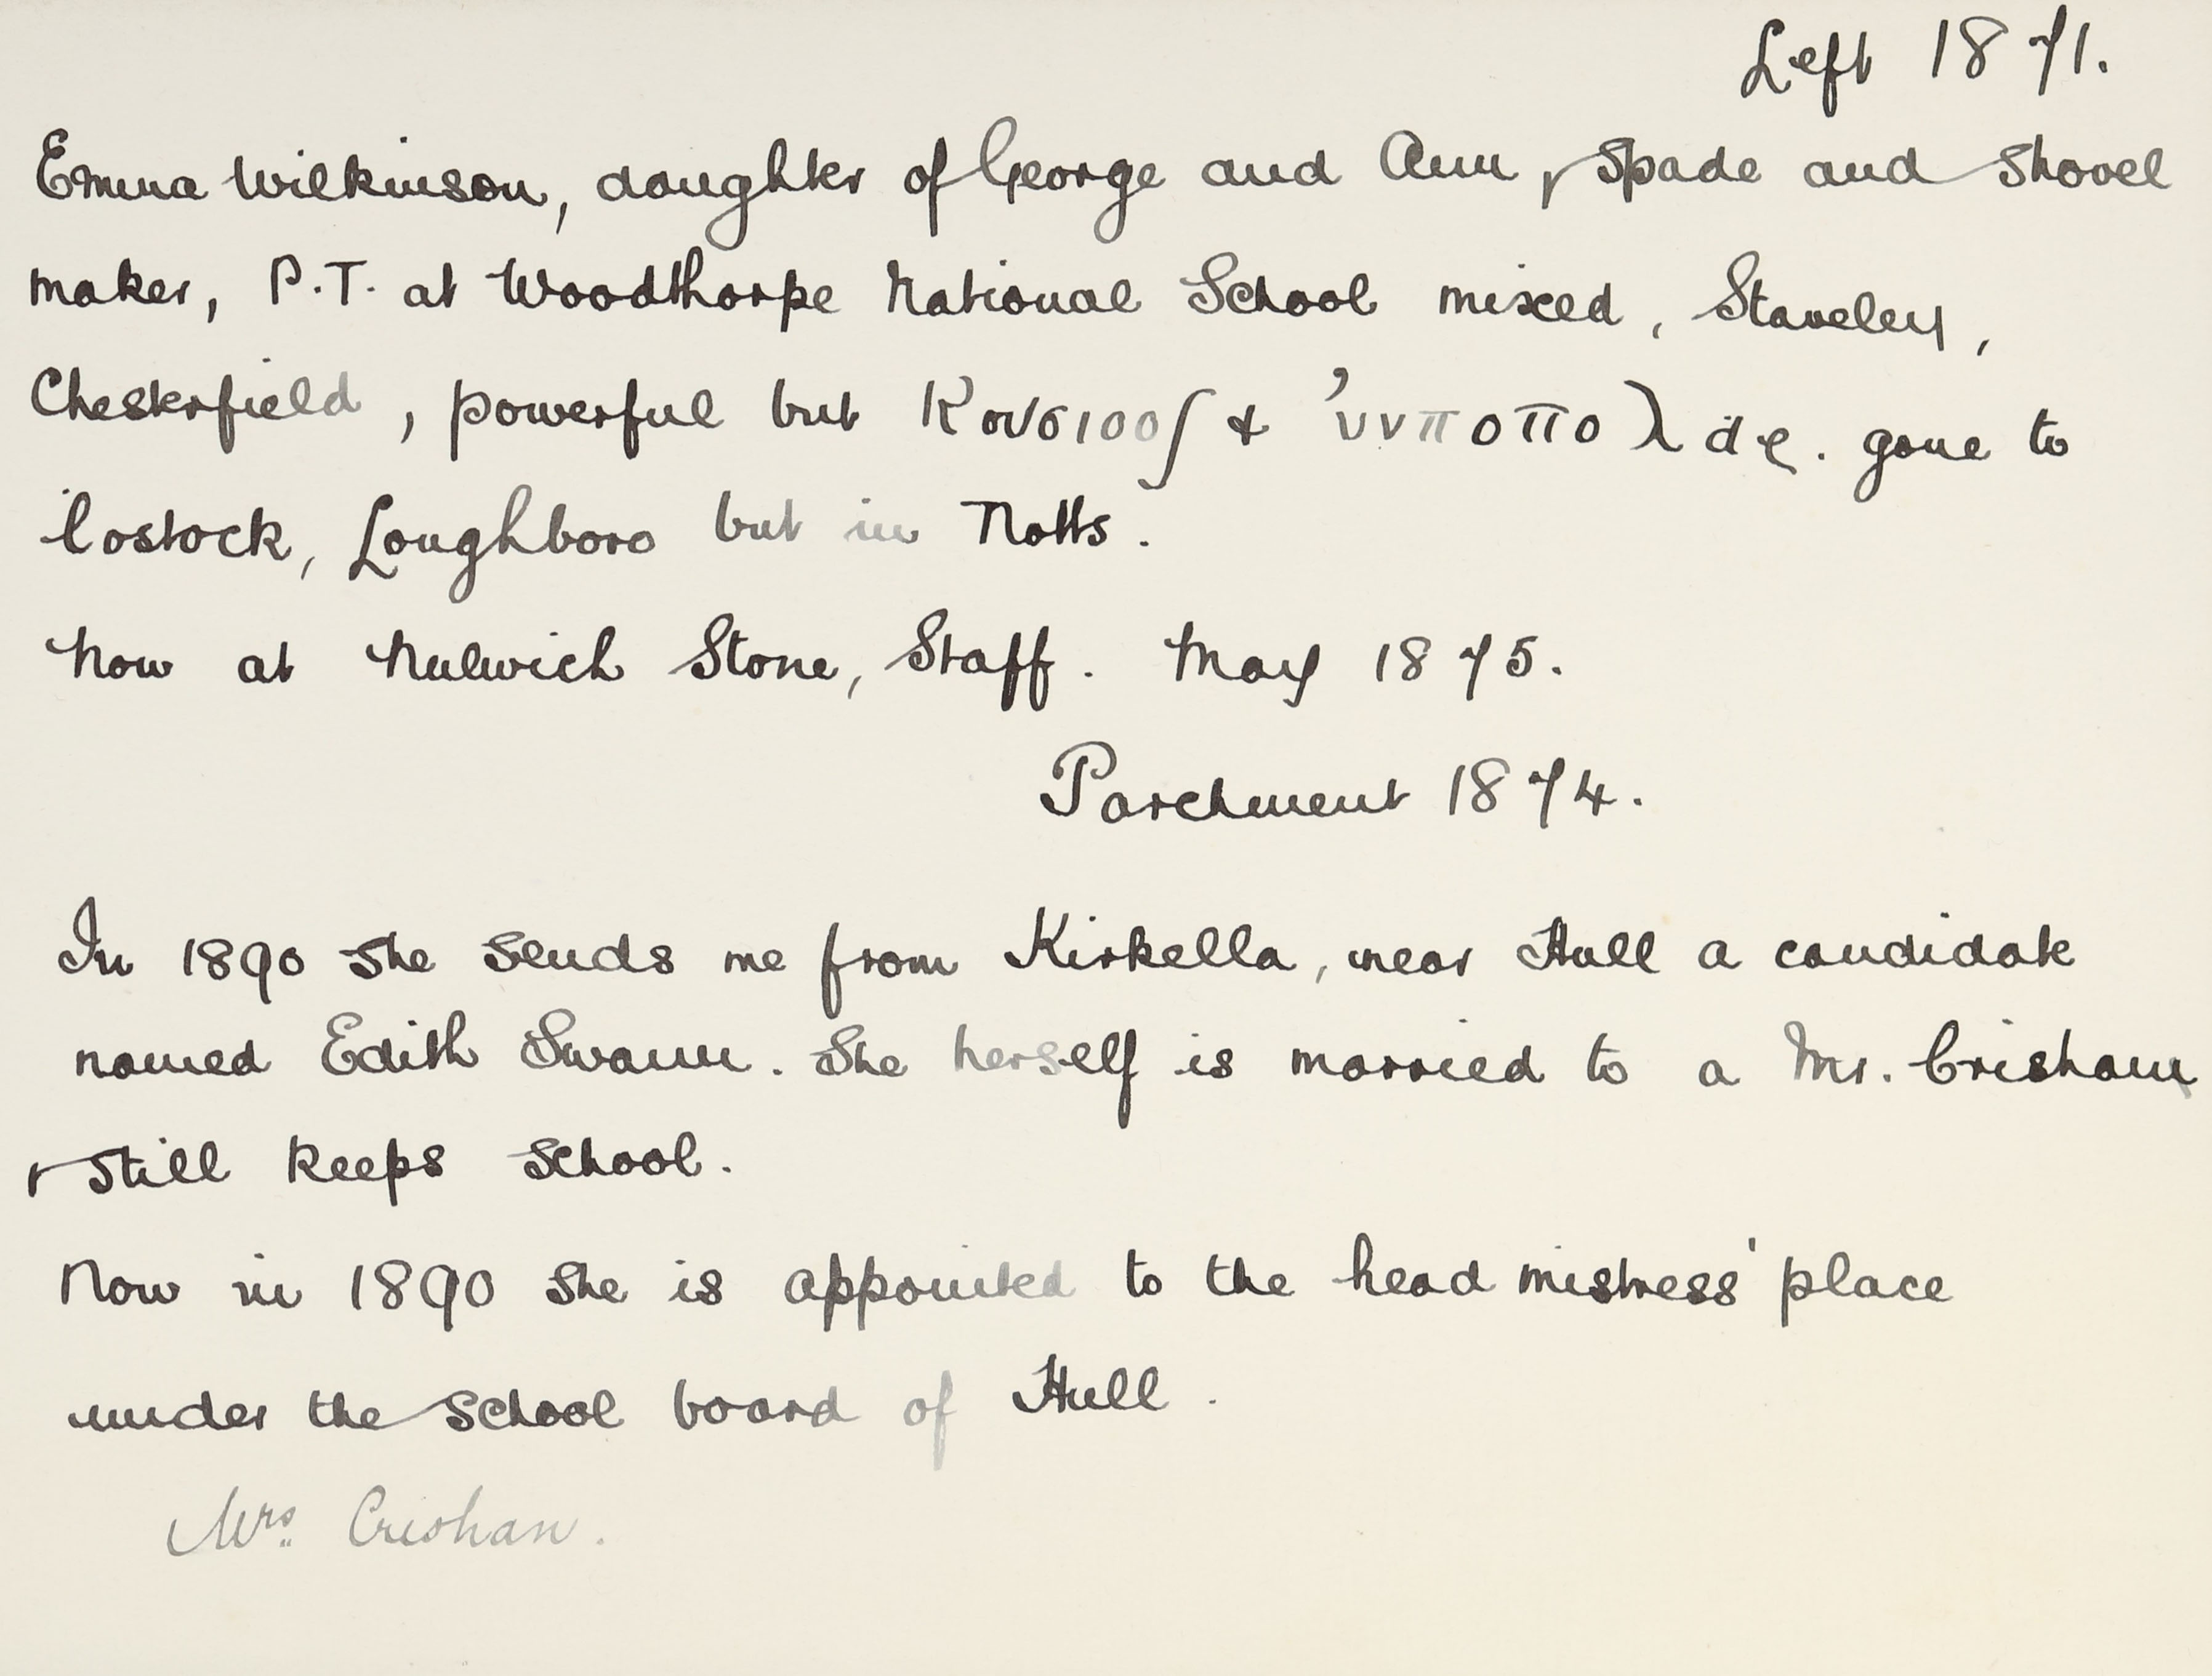 Left 1871.
Emma Wilkinson, daughter of George and Ann, spade and shovel
maker, P.T. at Woodthorpe National School mixed, Staveley,
Chesterfield, powerful but & gone to
Costock, Loughboro but in Notts.
Now at Mulwich Stone, Staff. May 1875.
Parchment 1874.
In 1890 she sends me from Kirkella, near Hull a candidate
named Edith Swann. She herself is married to a Mr. Crisham
& still keeps school.
Now in 1890 she is appointed to the head mistress' place
under the school board of Hull.
Mrs. Crishan.